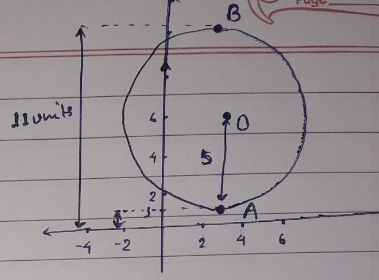 Page
B
11 units
6
O
4
5
2
1
A
-4 -2 2 4 6